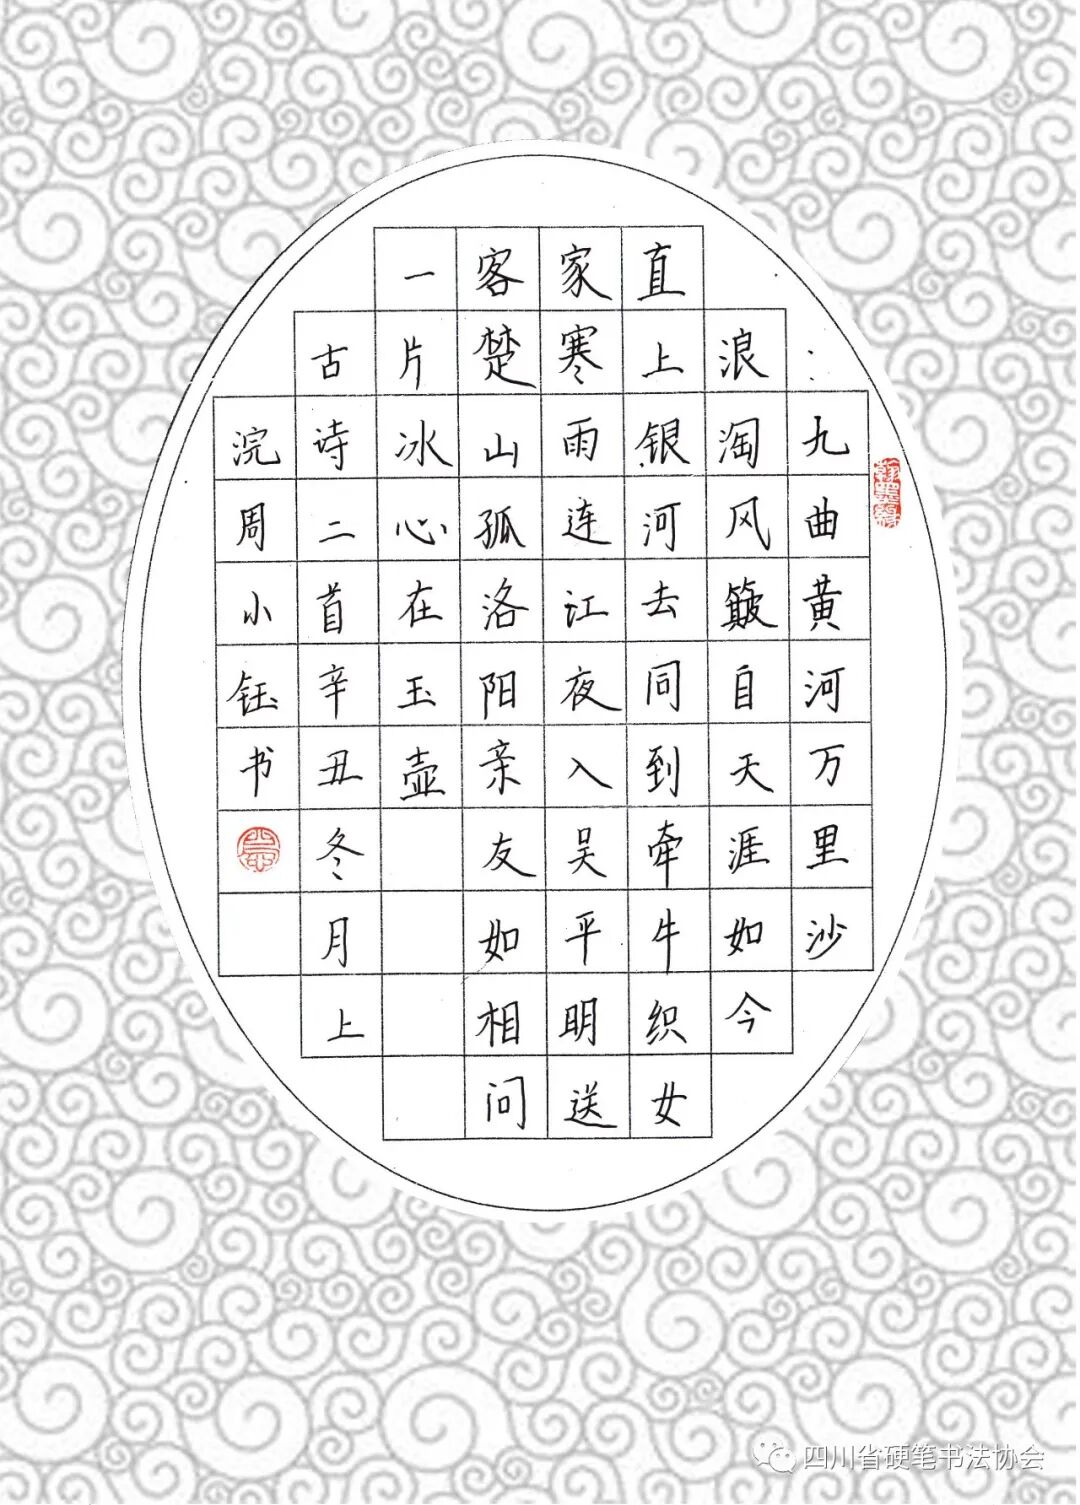 九曲黄河万里沙
浪淘风簸自天涯如今
直上银河去同到牵牛织女
家寒雨连江夜入吴平明送
客楚山孤洛阳亲友如相问
一片冰心在玉壶
古诗二首辛丑冬月上
浣周小钰书
翰墨缘
四川省硬笔书法协会